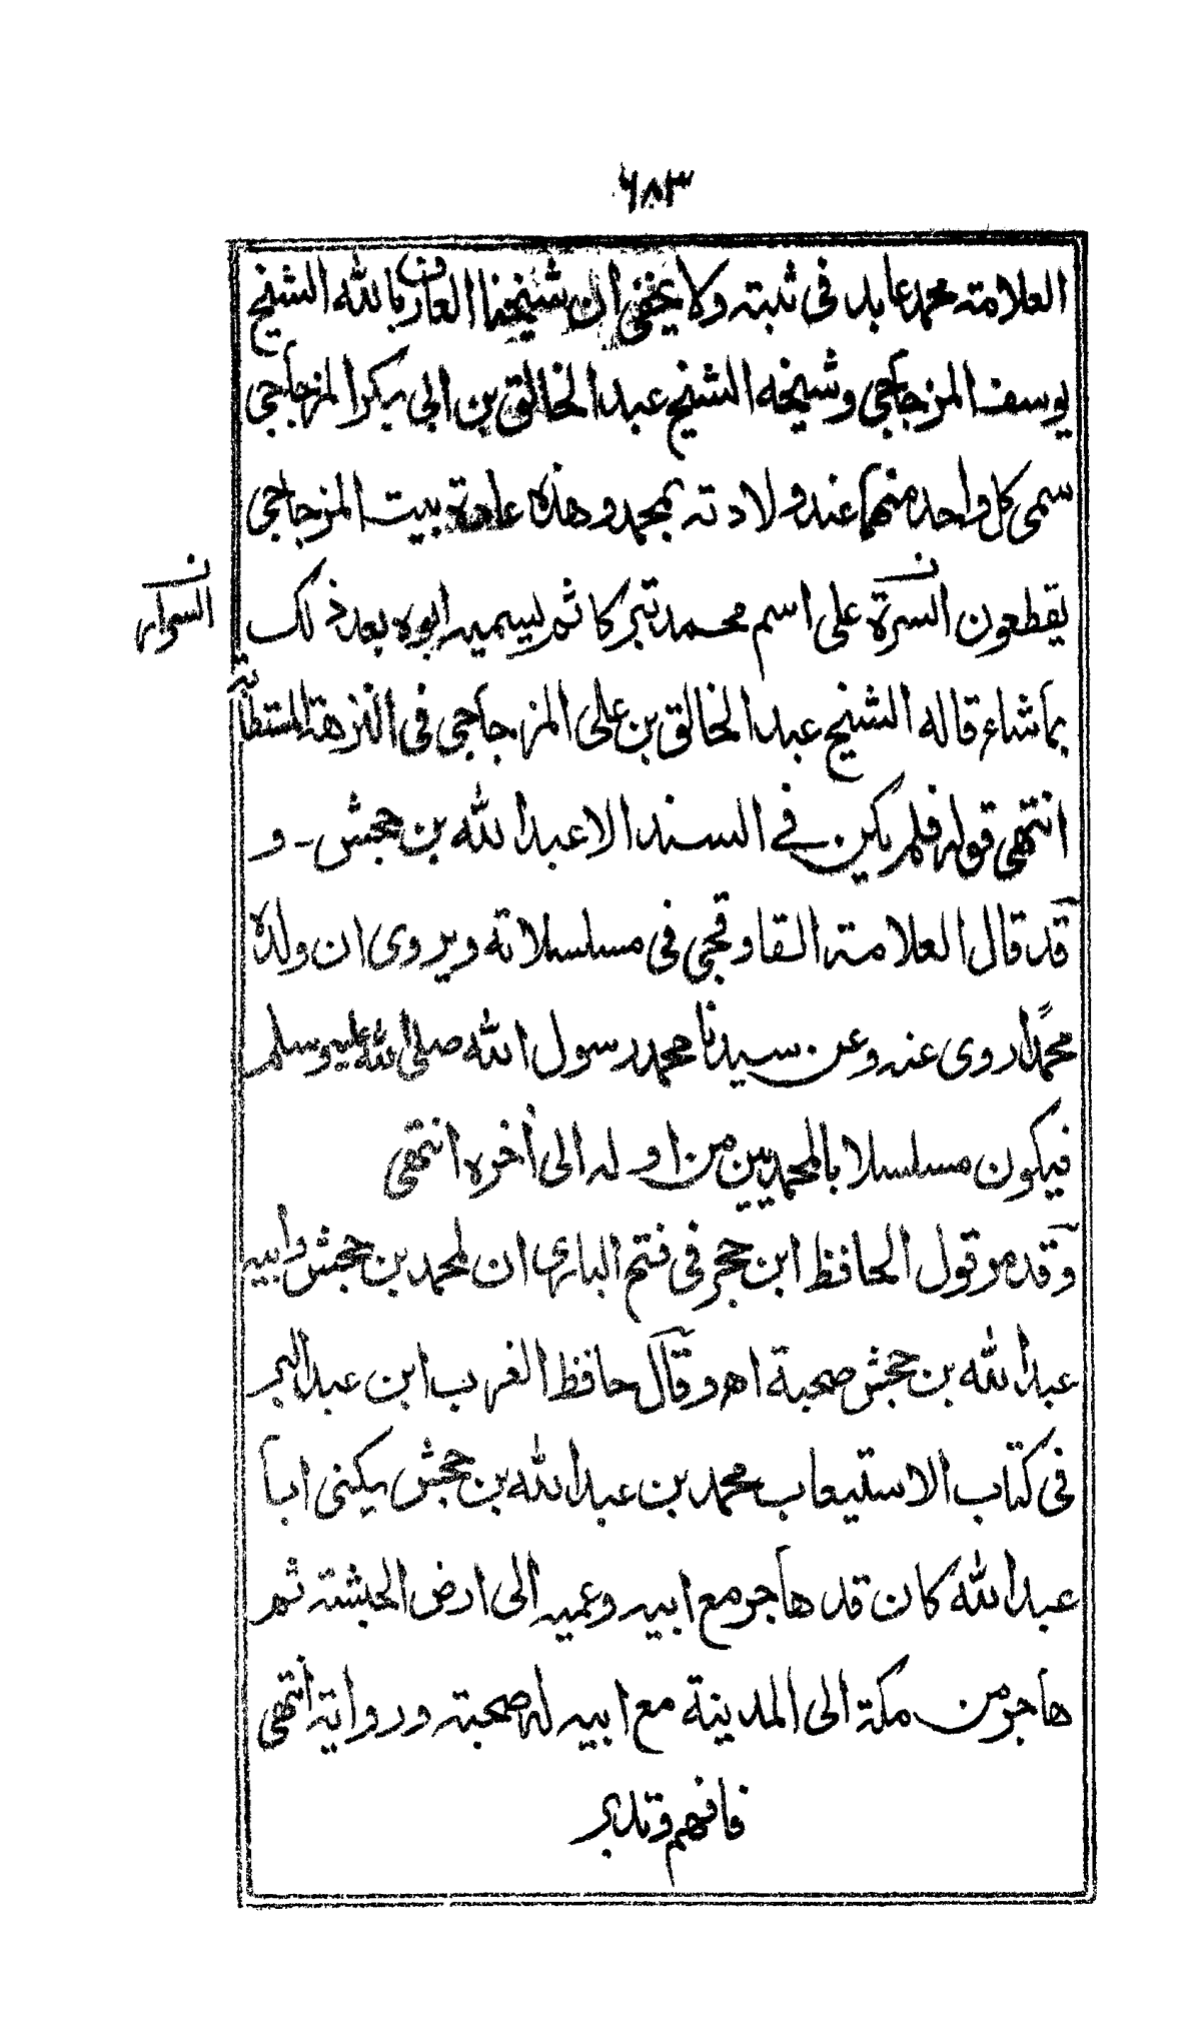 ٦٨٣
العلامة محمد عابد فى ثبته ولا يخفى ان شيخنا العارف بالله الشيخ
يوسف المزجاجى وشيخه الشيخ عبد الخالق بن ابى بكر المزجاجى
سمى كل واحد منهما عند ولادته بمحمد وهذه عادة بيت المزجاجى
يقطعون السرة على اسم محمد تبركا ثم يسميه ابوه بعد ذلك
بما شاء قاله الشيخ عبد الخالق بن على المزجاجى فى النزهة المستطابة
انتهى قوله فلم يكن فى السند الا عبد الله بن جحش - و
قد قال العلامة القاوقجى فى مسلسلاته ويروى ان ولده
محمدًا روى عنه وعن سيدنا محمد رسول الله صلى الله عليه وسلم
فيكون مسلسلا بالمحمديين من اوله الى أخره انتهى
وقد مر قول الحافظ ابن حجر فى فتح البارى ان لمحمد بن جحش وابيه
عبد الله بن جحش صحبة اهـ وقال حافظ الغرب ابن عبد البر
فى كتاب الاستيعاب محمد بن عبد الله بن جحش يكنى ابا
عبد الله كان قد هاجر مع ابيه وعميه الى ارض الحبشة ثم
هاجر من مكة الى المدينة مع ابيه له صحبة ورواية انتهى
فافهم وتدبر